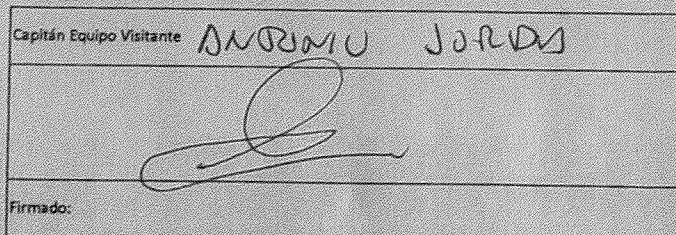 Capitán Equipo Visitante ANTONIO JORDA
Firmado: